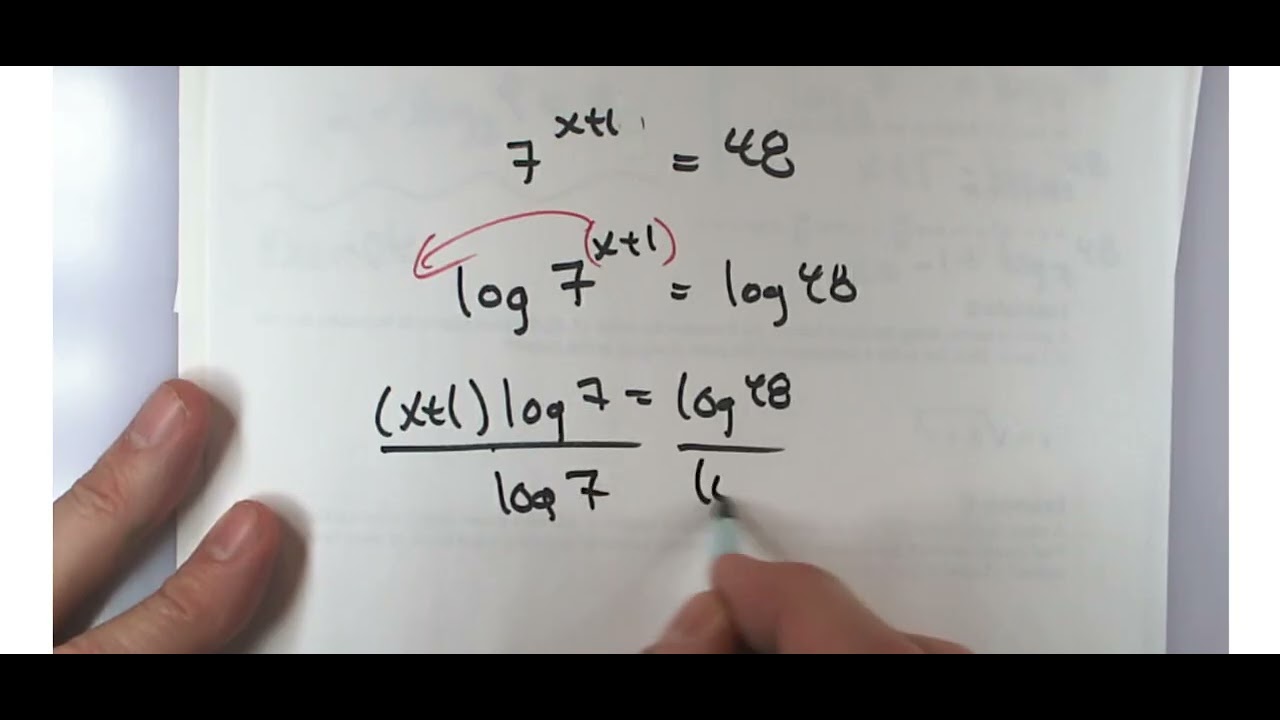 7^(x+1) = 48
log 7^(x+1) = log 48
(x+1) log 7 = log 48
log 7